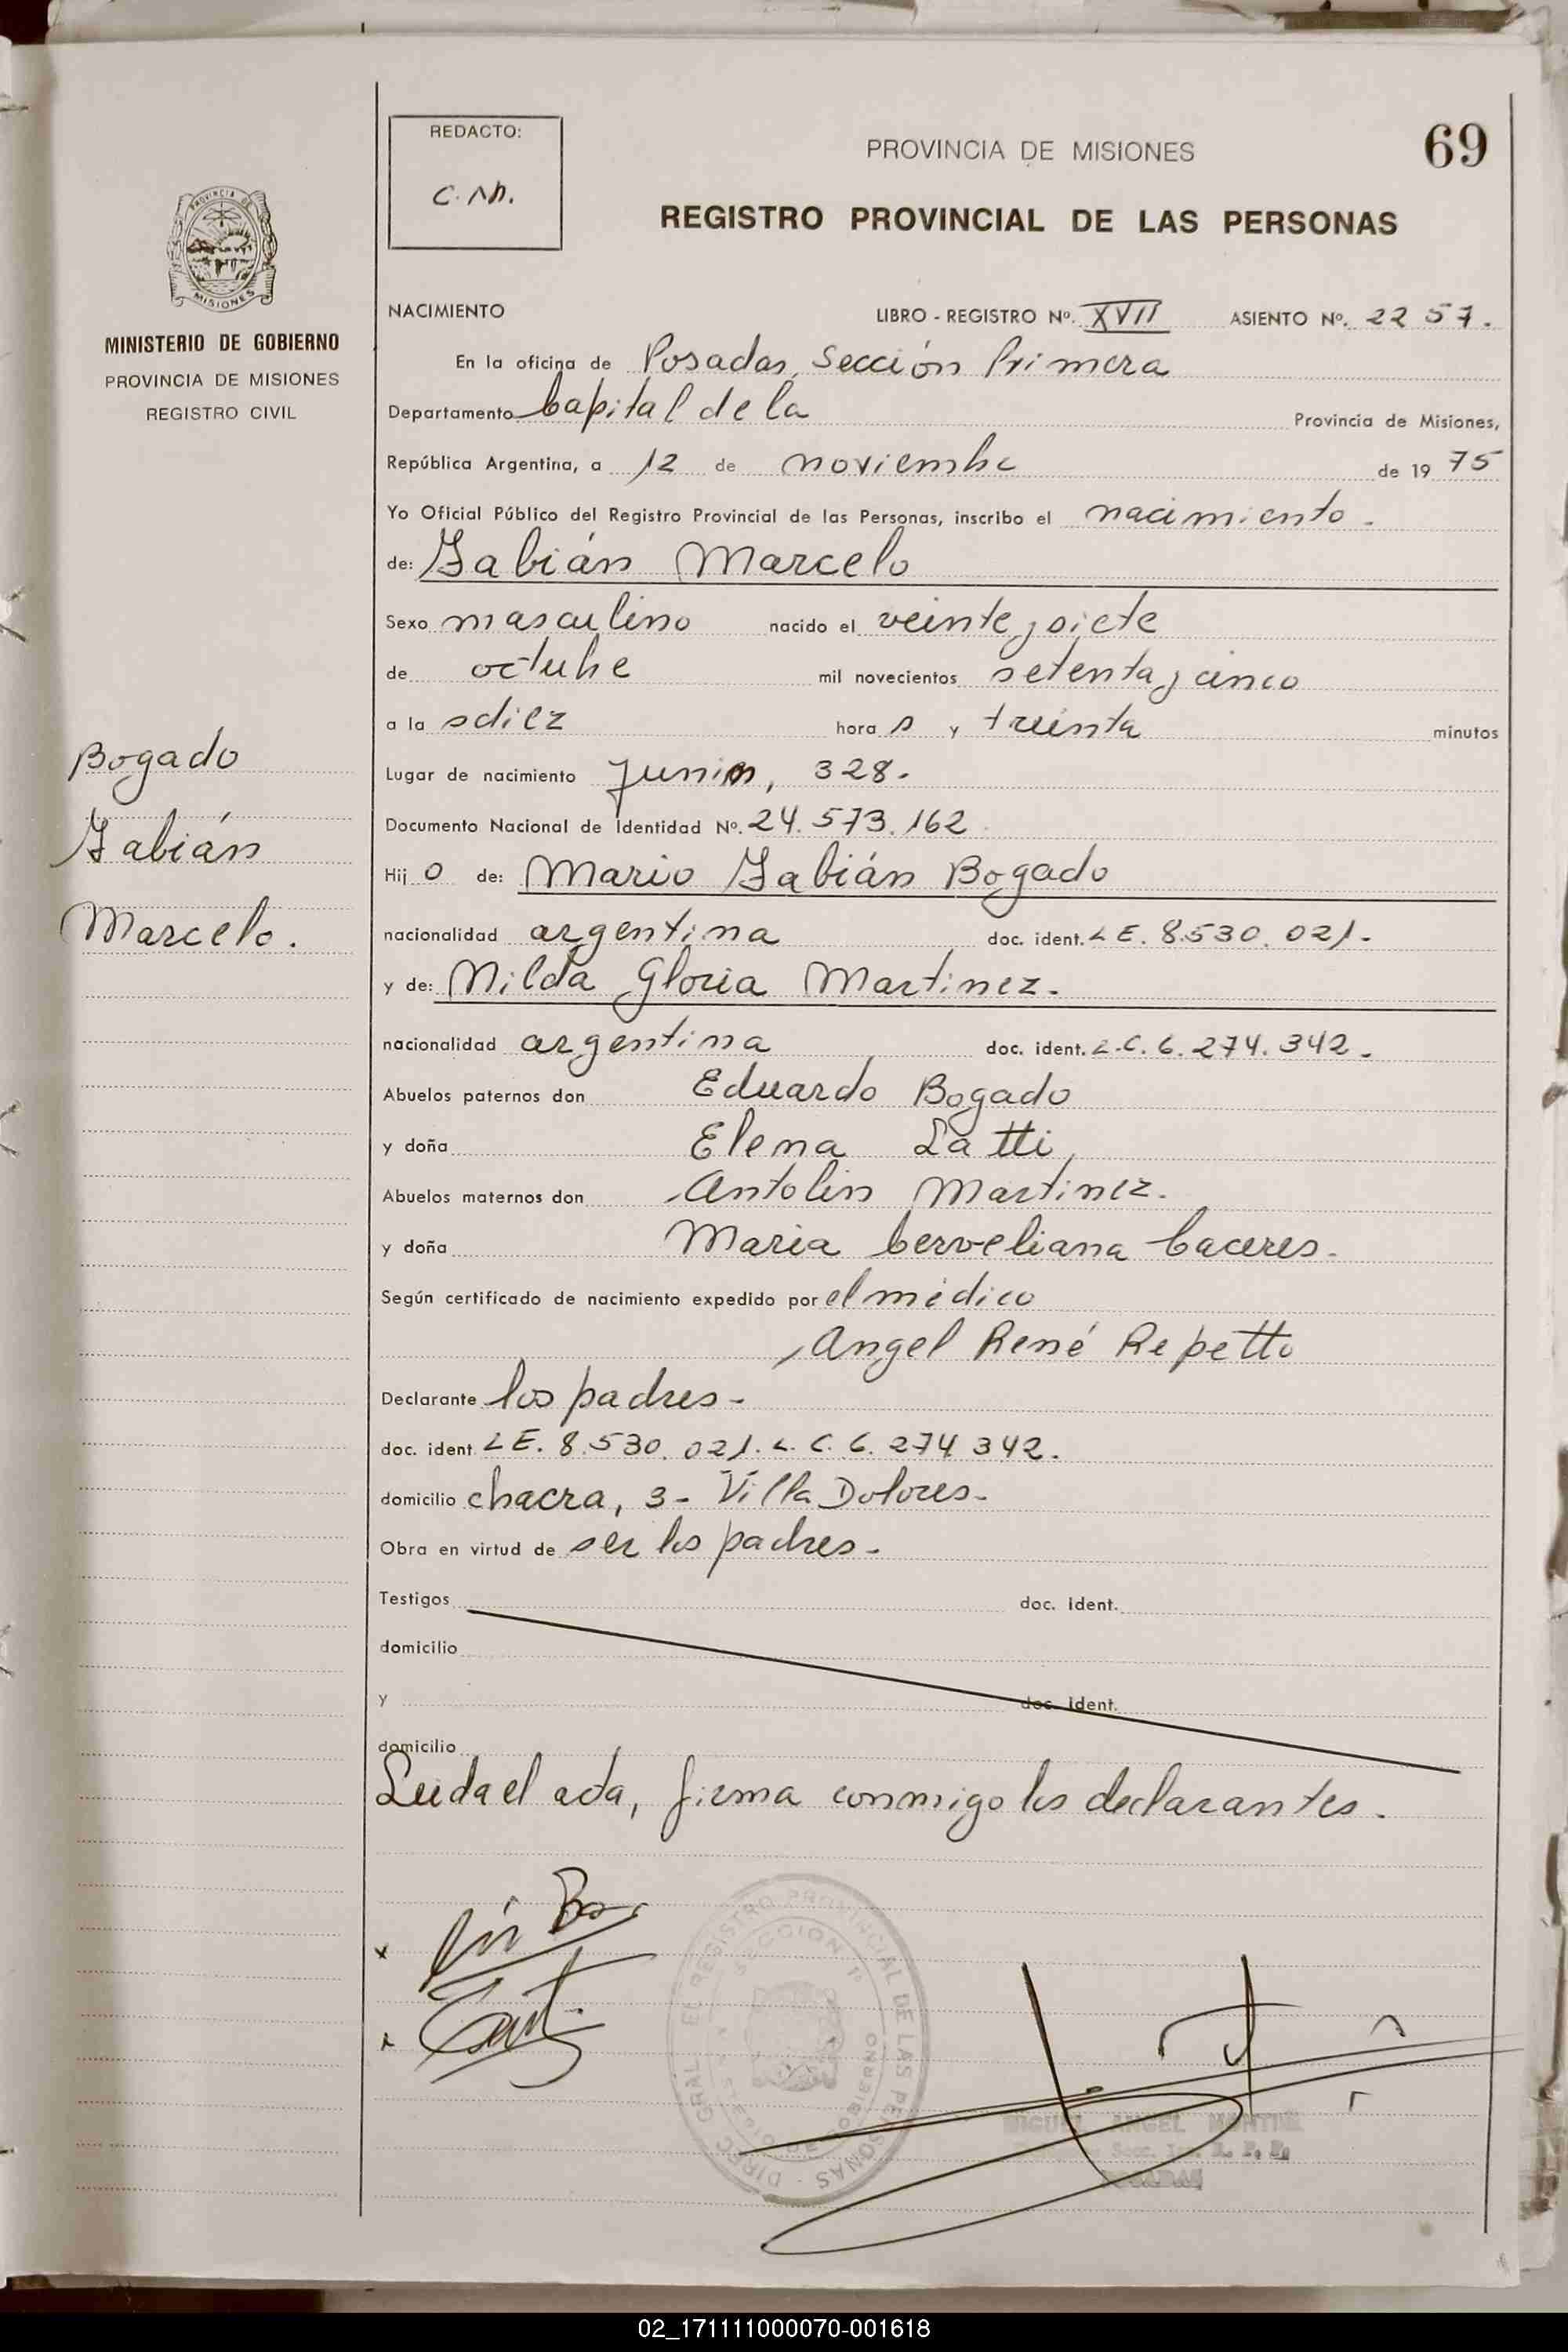 REDACTO:
C. M.
PROVINCIA DE MISIONES
69
REGISTRO PROVINCIAL DE LAS PERSONAS
PROVINCIA DE
MISIONES
MINISTERIO DE GOBIERNO
PROVINCIA DE MISIONES
REGISTRO CIVIL
Bogado
Fabián
Marcelo.
NACIMIENTO LIBRO - REGISTRO Nº. XVII ASIENTO Nº. 2257.
En la oficina de Posadas, Sección Primera
Departamento Capital de la Provincia de Misiones,
República Argentina, a 12 de noviembre de 19 75
Yo Oficial Público del Registro Provincial de las Personas, inscribo el nacimiento.
de: Fabián Marcelo
Sexo masculino nacido el veinte y siete
de octubre mil novecientos setenta y cinco
a la s diez hora s y treinta minutos
Lugar de nacimiento Junin, 328.
Documento Nacional de Identidad Nº. 24.573.162
Hij o de: Mario Fabián Bogado
nacionalidad argentina doc. ident. LE. 8.530.021.
y de: Nilda Gloria Martinez.
nacionalidad argentina doc. ident. L.C. 6.274.342.
Abuelos paternos don Eduardo Bogado
y doña Elena Latti
Abuelos maternos don Antolin Martinez.
y doña Maria Cerveliana Caceres.
Según certificado de nacimiento expedido por el médico
Angel René Repetto
Declarante los padres-
doc. ident. LE. 8.530.021. L.C. 6.274342.
domicilio chacra, 3- Villa Dolores-
Obra en virtud de ser los padres-
Testigos doc. ident.
domicilio
y doc. ident.
domicilio
Leida el acta, firma conmigo los declarantes.
DIREC. GRAL. EL REGISTRO PROVINCIAL DE LAS PERSONAS
SECCION 1ª
MINISTERIO DE GOBIERNO
MIGUEL ANGEL
POSADAS
02_171111000070-001618